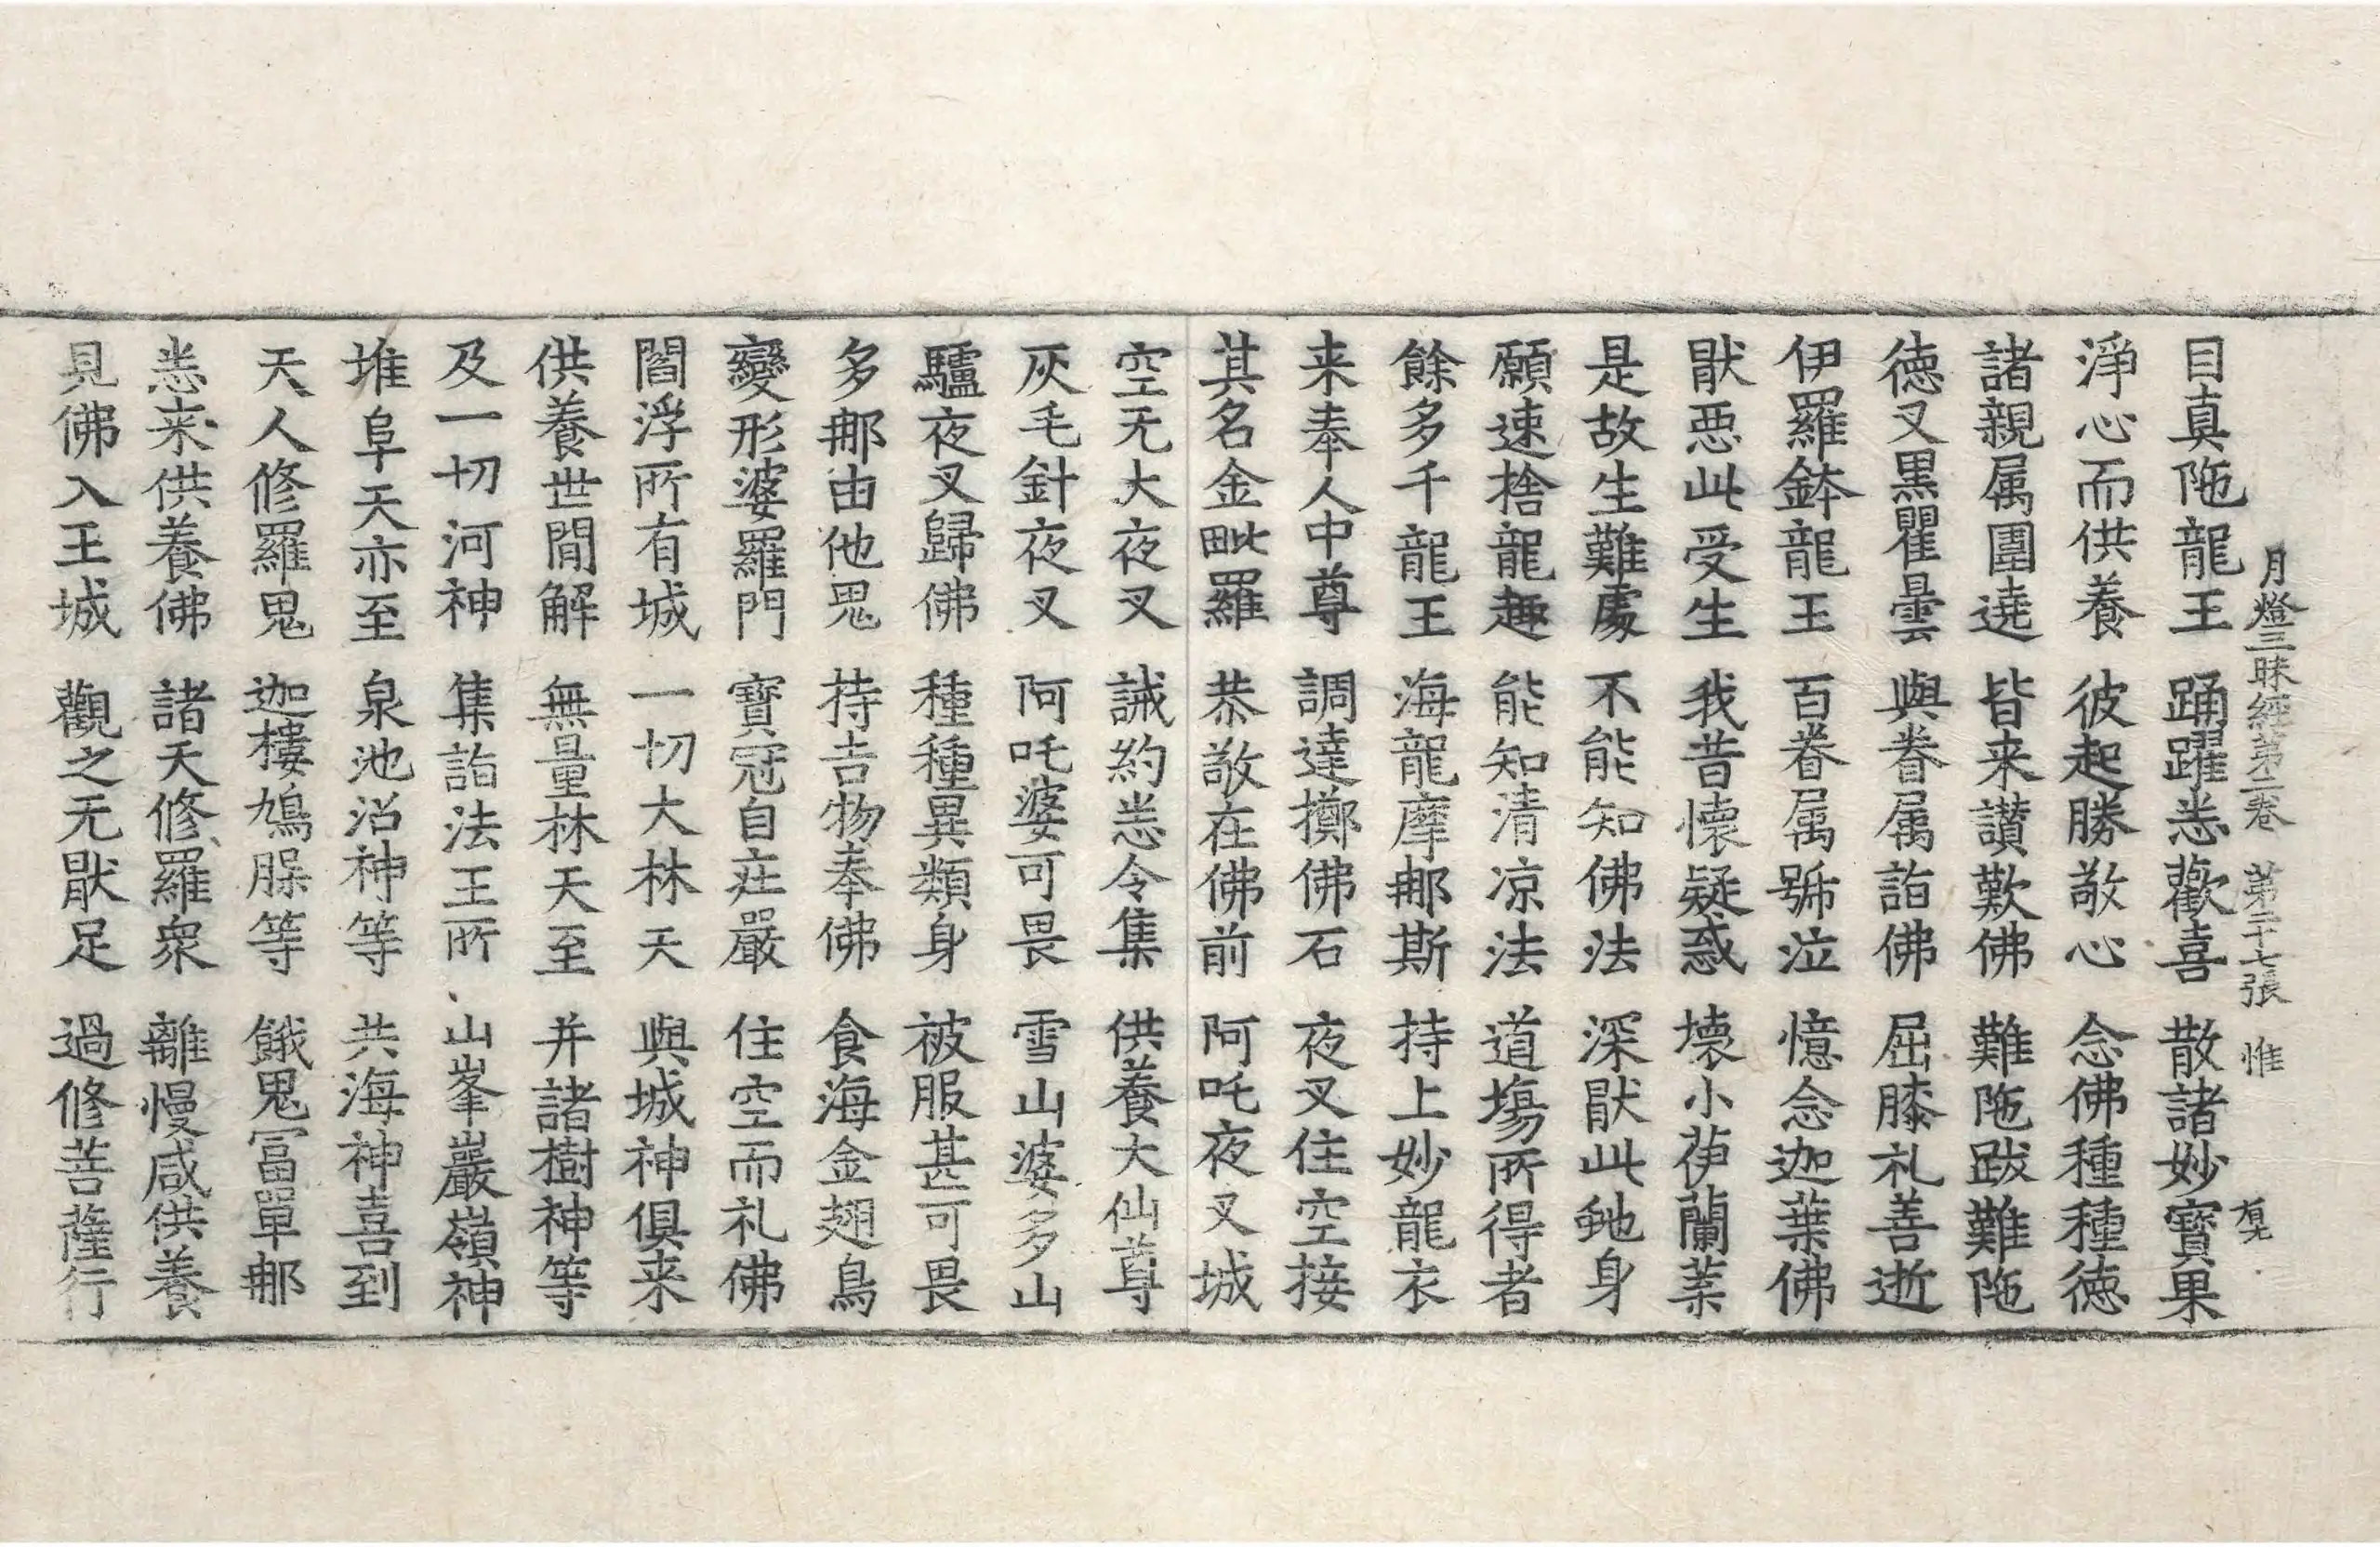 月燈三昧經第二卷　第二十七張　惟
目真陁龍王　踊躍恙歡喜　散諸妙寶果
淨心而供養　彼起勝敬心　念佛種種德
諸親属圍遶　皆来讃歎佛　難陁跋難陁
徳又黒瞿曇　與眷属詣佛　屈膝礼善逝
伊羅鉢龍王　百眷属號泣　憶念迦葉佛
猒惡此受生　我昔懷疑惑　壞小伊蘭葉
是故生難處　不能知佛法　深猒此虵身
願速捨龍趣　能知清凉法　道塲所得者
餘多千龍王　海龍摩那斯　持上妙龍衣
来奉人中尊　調達擲佛石　夜叉住空接
其名金毗羅　恭敬在佛前　阿吒夜叉城
空无大夜叉　誡約恙令集　供養大仙尊
灰毛針夜叉　阿吒婆可畏　雪山婆多山
驢夜叉歸佛　種種異類身　被服甚可畏
多那由他鬼　持吉物奉佛　食海金翅鳥
變形婆羅門　寶冠自庄嚴　住空而礼佛
閻浮所有城　一切大林天　與城神俱来
供養世閒解　無量林天至　并諸樹神等
及一切河神　集詣法王所　山峯巖嶺神
堆阜天亦至　泉池沼神等　共海神喜到
天人修羅鬼　迦樓鳩腬等　餓鬼冨單那
恙来供養佛　諸天修羅衆　離慢咸供養
見佛入王城　觀之无猒足　過修菩薩行